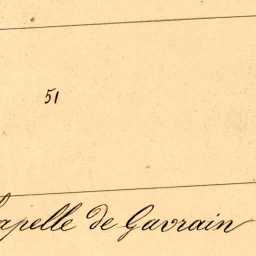 51
Chapelle de Gavrain